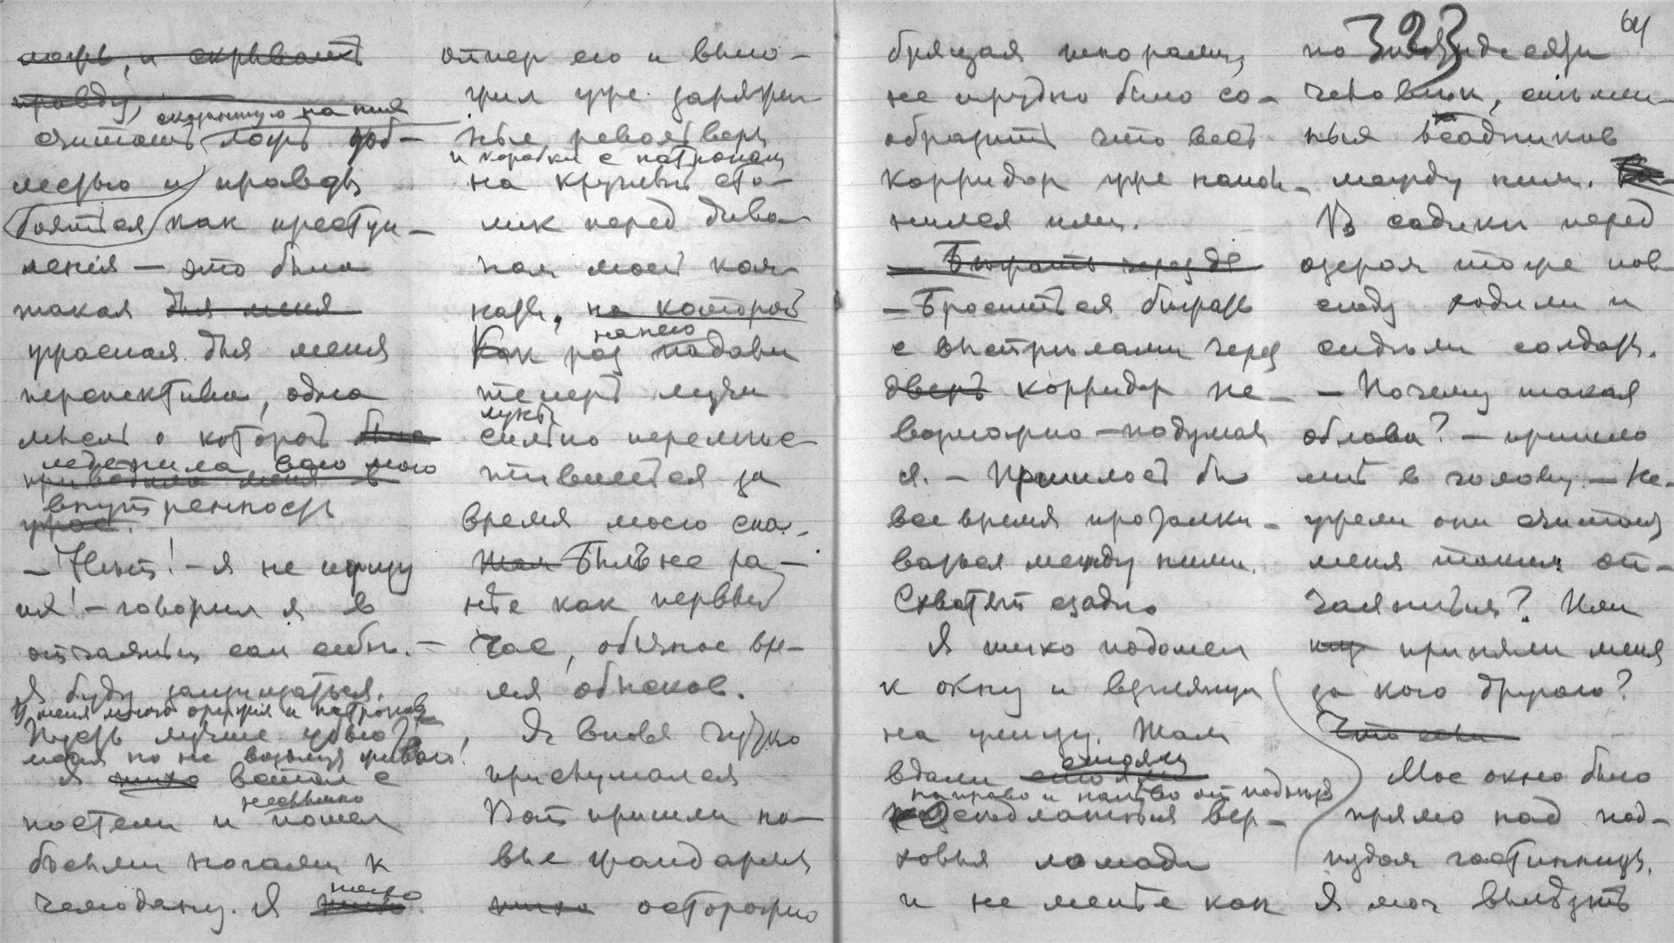 ложь, и скрывать
правду,
сказанную на ния
считать ложь доб-
лестью и правды
боятся как преступ-
ления — это была
такая для меня
ужасная для меня
перспектива, одна
мысль о которой была
леденила всю мою
приводила меня в
внутренность
ужас.
— Нет! — я не
— говорил я в
отчаяньи сам себе. —
Я буду защищаться.
У меня много оружия и патронов
Пусть лучше убью
но не возьмут живого!
Я тихо встал с
неслышно
постели и пошел
босыми ногами к
чемодану. Я тихо
отпер его и выло-
жил уже заряжен-
ные револьверы
и коробки с патронами
на круглый сто-
лик перед дива-
ном моей ком-
наты, на которой
на него
Как раз падали
теперь лучи
луны
сильно переме-
стившейся за
время моего сна.
Был не ра-
нее как первый
час, обычное вре-
мя обысков.
Я вновь чутко
прислушался
Вот пришли но-
вые жандармы
тихо осторожно
бряцая шпорами,
не трудно было со-
образить что весь
корридор уже напол-
нился ими.
— Бежать через
— Броситься бежать
с выстрелами через
дверь корридор не-
возможно — подумал
я. — Пришлось бы
все время проталки-
ваться между ними.
Схватят сзади
Я тихо подошел
к окну и взглянул
на улицу. Там
стояли
вдали стояли
направо и налево от подъезда
оседланныя вер-
ховыя лошади
и не менее как
323
64
по
человек, спешен-
ных всадников
между ними.
В садике перед
озером тоже пов-
сюду ходили и
сидели солдаты.
— Почему такая
облава? — пришло
мне в голову. — Не-
ужели они считают
меня таким от-
чаянным? Или
приняли меня
за кого другого?
Что если
Мое окно было
прямо над подъ-
ездом гостинницы.
Я мог вылезть